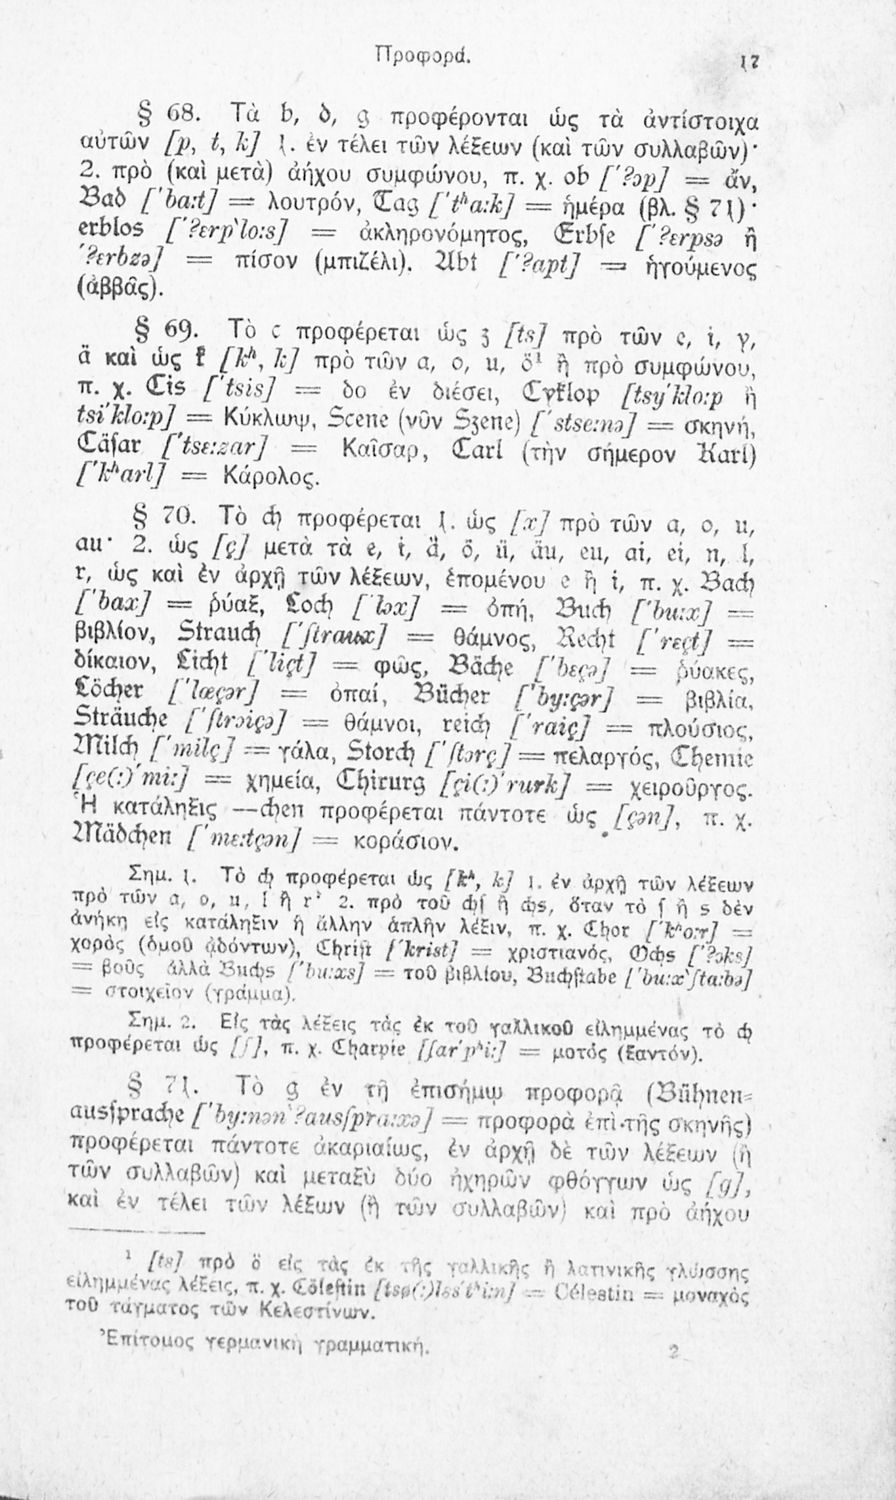 Προφορά.
17
§ 68. Τὰ b, d, g προφέρονται ὡς τὰ ἀντίστοιχα
αὐτῶν [p, t, k] 1. ἐν τέλει τῶν λέξεων (καὶ τῶν συλλαβῶν)·
2. πρὸ (καὶ μετὰ) ἀήχου συμφώνου, π. χ. ob ['ʔɔp] = ἄν,
Bad ['ba:t] = λουτρόν, Tag ['tʰa:k] = ἡμέρα (βλ. § 71)·
erblos ['ʔɛrp'lo:s] = ἀκληρονόμητος, Erbſe ['ʔɛrpsə ἢ
'ʔɛrbzə] = πίσον (μπιζέλι). Abt ['ʔapt] = ἡγούμενος
(ἀββᾶς).
§ 69. Τὸ c προφέρεται ὡς z [ts] πρὸ τῶν e, i, y,
ä καὶ ὡς k [kʰ, k] πρὸ τῶν a, o, u, ö¹ ἢ πρὸ συμφώνου,
π. χ. Cis ['tsis] = do ἐν διέσει, Cyklop [tsy'klo:p ἢ
tsi'klo:p] = Κύκλωψ, Scene (νῦν Szene) ['stse:nə] = σκηνή,
Cäſar ['tsɛ:zar] = Καῖσαρ, Carl (τὴν σήμερον Karl)
['kʰarl] = Κάρολος.
§ 70. Τὸ ch προφέρεται 1. ὡς [x] πρὸ τῶν a, o, u,
au· 2. ὡς [ç] μετὰ τὰ e, i, ä, ö, ü, äu, eu, ai, ei, n, l,
r, ὡς καὶ ἐν ἀρχῇ τῶν λέξεων, ἑπομένου e ἢ i, π. χ. Bach
['bax] = ῥύαξ, Loch ['lɔx] = ὀπή, Buch ['bu:x] =
βιβλίον, Strauch ['ʃtraux] = θάμνος, Recht ['reçt] =
δίκαιον, Licht ['liçt] = φῶς, Bäche ['bɛçə] = ῥύακες,
Löcher ['lœçər] = ὀπαί, Bücher ['by:çər] = βιβλία,
Sträuche ['ʃtrɔiçə] = θάμνοι, reich ['raiç] = πλούσιος,
Milch ['milç] = γάλα, Storch ['ʃtɔrç] = πελαργός, Chemie
[çe(:)'mi:] = χημεία, Chirurg [çi(:)'rurk] = χειροῦργος.
Ἡ κατάληξις —chen προφέρεται πάντοτε ὡς [çən], π. χ.
Mädchen ['mɛ:tçən] = κοράσιον.
Σημ. 1. Τὸ ch προφέρεται ὡς [kʰ, k] 1. ἐν ἀρχῇ τῶν λέξεων
πρὸ τῶν a, o, u, l ἢ r· 2. πρὸ τοῦ chſ ἢ chs, ὅταν τὸ ſ ἢ s δὲν
ἀνήκῃ εἰς κατάληξιν ἢ ἄλλην ἁπλῆν λέξιν, π. χ. Chor ['kʰo:r] =
χορὸς (ὁμοῦ ᾀδόντων), Chriſt ['krist] = χριστιανός, Ochs ['ʔɔks]
= βοῦς ἀλλὰ Buchs ['bu:xs] = τοῦ βιβλίου, Buchſtabe ['bu:x'ʃta:bə]
= στοιχεῖον (γράμμα).
Σημ. 2. Εἰς τὰς λέξεις τὰς ἐκ τοῦ γαλλικοῦ εἰλημμένας τὸ ch
προφέρεται ὡς [ʃ], π. χ. Charpie [ʃar'pʰi:] = μοτός (ξαντόν).
§ 71. Τὸ g ἐν τῇ ἐπισήμῳ προφορᾷ (Bühnen-
ausſprache ['by:nən'ʔausʃpra:xə] = προφορὰ ἐπὶ τῆς σκηνῆς)
προφέρεται πάντοτε ἀκαριαίως, ἐν ἀρχῇ δὲ τῶν λέξεων (ἢ
τῶν συλλαβῶν) καὶ μεταξὺ δύο ἠχηρῶν φθόγγων ὡς [g],
καὶ ἐν τέλει τῶν λέξεων (ἢ τῶν συλλαβῶν) καὶ πρὸ ἀήχου
¹ [ts] πρὸ ö εἰς τὰς ἐκ τῆς γαλλικῆς ἢ λατινικῆς γλώσσης
εἰλημμένας λέξεις, π. χ. Cöleſtin [tsø(:)lɛs'tʰi:n] = Célestin = μοναχὸς
τοῦ τάγματος τῶν Κελεστίνων.
Ἐπίτομος γερμανικὴ γραμματική.
2